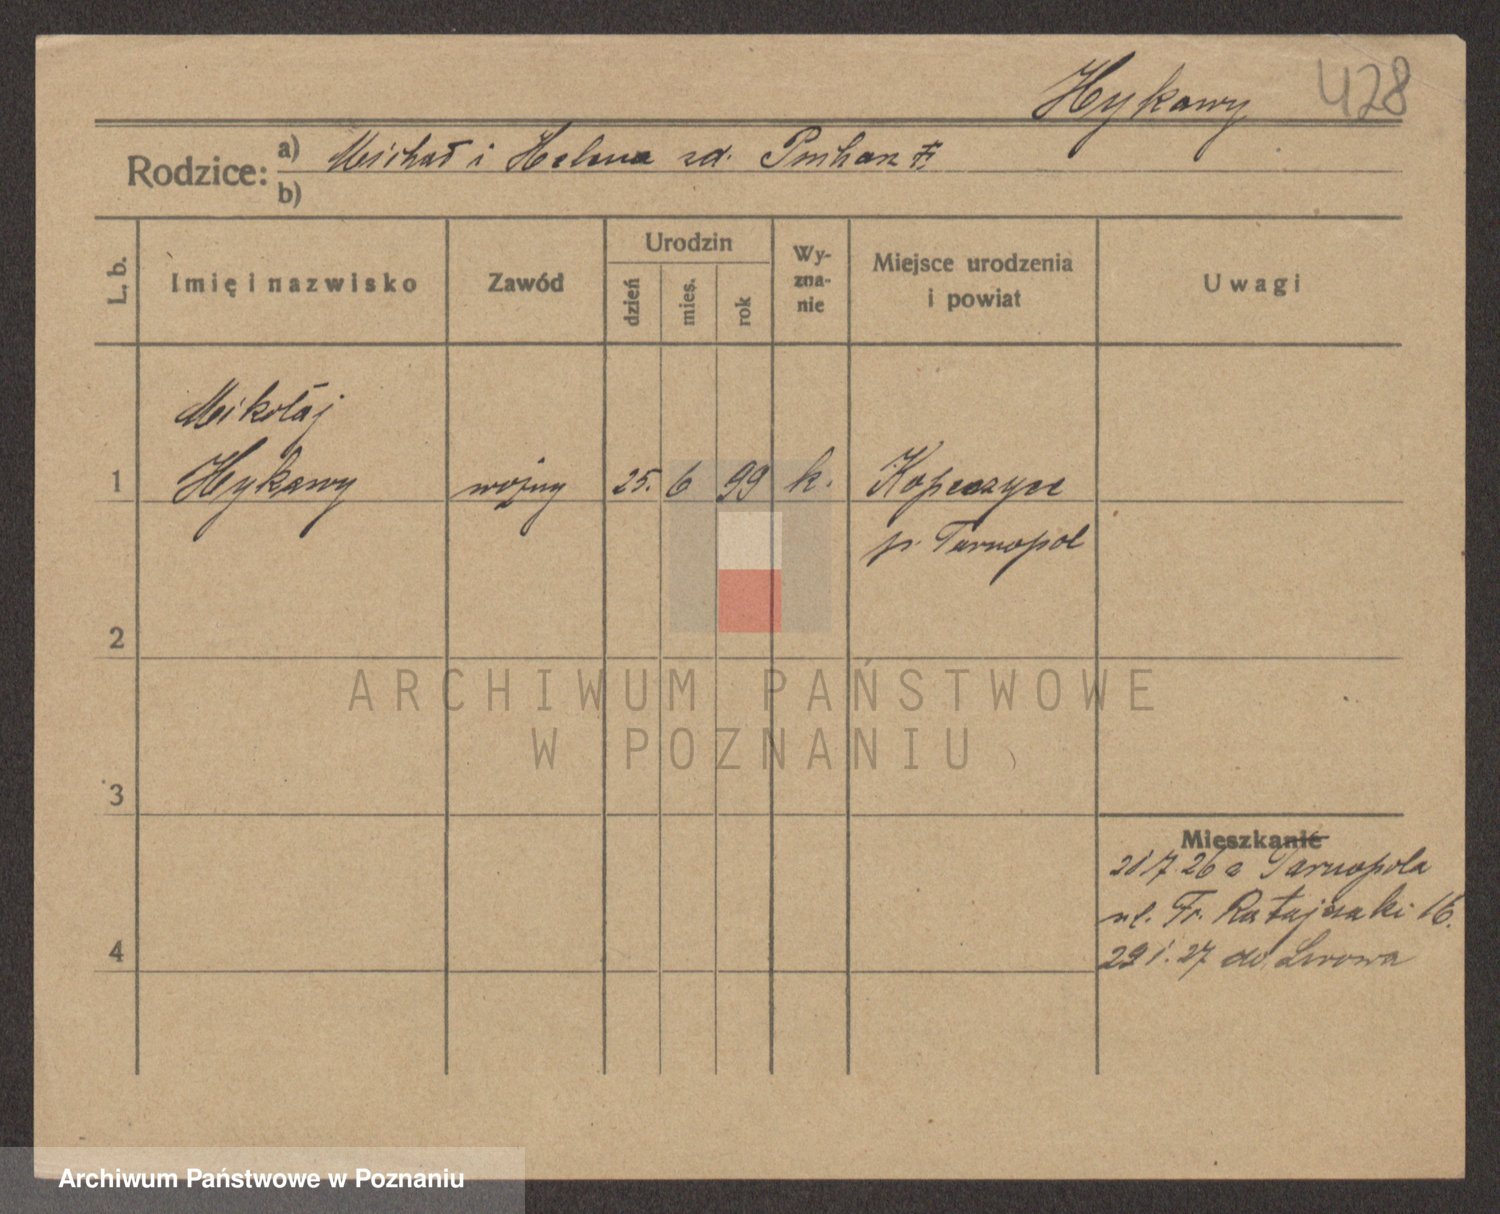 Hykawy 428
Rodzice: a) Michał i Helena zd.
b)
L. b. Imię i nazwisko Zawód Urodzin dzień mies. rok Wyznanie Miejsce urodzenia i powiat Uwagi
Mikołaj
1 Hykawy woźny 25. 6 99 k. Kopeczyce
p. Tarnopol
2
3
Mieszkanie
z Tarnopola
ul. Fr. Ratajczaki 16.
4 29 1. 27 do Lwowa
ARCHIWUM PAŃSTWOWE
W POZNANIU
Archiwum Państwowe w Poznaniu